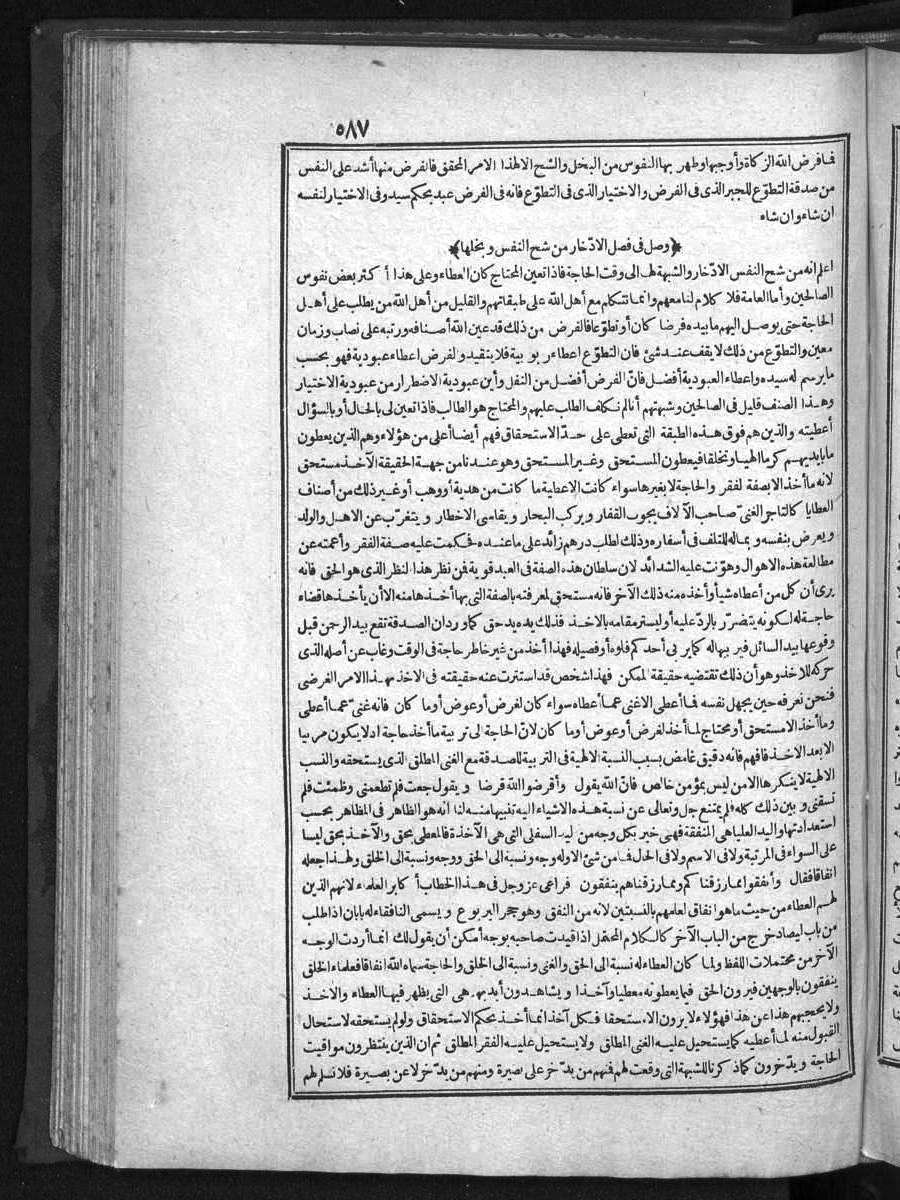 ٥٨٧
فما فرض الله الزكاة وأوجبها وطهر بها النفوس من البخل والشح الا لهذا الامر المحقق فالفرض منها أشد على النفس
من صدقة التطوّع للجبر الذى فى الفرض والاختيار الذى فى التطوّع فانه فى الفرض عبد بحكم سيد وفى الاختيار لنفسه
ان شاء وان شاء
﴿وصل فى فصل الادّخار من شح النفس وبخلها﴾
اعلم انه من شح النفس الادّخار والشبهة لها الى وقت الحاجة فاذا تعين المحتاج كان العطاء وعلى هذا أكثر بعض نفوس
الصالحين وأما العامة فلا كلام لنا معهم وانما نتكلم مع أهل الله على طبقاتهم والقليل من أهل الله من يطلب على أهل
الحاجة حتى يوصل اليهم ما بيده فرضا كان أو تطوّعا فالفرض من ذلك قد عين الله أصنافه ورتبه على نصاب وزمان
معين والتطوّع من ذلك لا يقف عند شئ فان التطوّع اعطاء ربوبية فلا يتقيد والفرض اعطاء عبودية فهو بحسب
ما يرسم له سيده واعطاء العبودية أفضل فانّ الفرض أفضل من النفل وأين عبودية الاضطرار من عبودية الاختيار
وهذا الصنف قليل فى الصالحين وشبهتهم أنا لم نكلف الطلب عليهم والمحتاج هو الطالب فاذا تعين لى بالحال أو بالسؤال
أعطيته والذين هم فوق هذه الطبقة التى تعطى على حدّ الاستحقاق فهم أيضا أعلى من هؤلاء وهم الذين يعطون
ما بأيديهم كرما الهيا وتخلقا فيعطون المستحق وغير المستحق وهو عندنا من جهة الحقيقة الآخذ مستحق
لانه ما أخذ الا بصفة لفقر والحاجة لا بغيرها سواء كانت الاعطية ما كانت من هدية أو وهب أو غير ذلك من أصناف
العطايا كالتاجر الغنىّ صاحب الآلاف يجوب القفار ويركب البحار ويقاسى الاخطار ويتغرّب عن الاهل والولد
ويعرض بنفسه وبماله للتلف فى أسفاره وذلك لطلب درهم زائد على ما عنده فحكمت عليه صفة الفقر وأعمته عن
مطالعة هذه الاهوال وهوّنت عليه الشدائد لان سلطان هذه الصفة فى العبد قوية فمن نظر هذا النظر الذى هو الحق فانه
يرى أن كل من أعطاه شيأ وأخذه منه ذلك الآخر فانه مستحق لمعرفته بالصفة التى بها أخذها منه الا أن يأخذها قضاء
حاجة له لكونه يتضرّر بالردّ عليه أو ليستر مقامه بالاخذ فذلك يده يد حق كما ورد ان الصدقة تقع بيد الرحمن قبل
وقوعها بيد السائل فيربيها له كما يربى أحدكم فلوه أو فصيله فهذا أخذ من غير خاطر حاجة فى الوقت وغاب عن أصله الذى
حركه للاخذ وهو أن ذلك تقتضيه حقيقة الممكن فهذا شخص قد استترت عنه حقيقته فى الاخذ بهذا الامر العرضى
فنحن نعرفه حين يجهل نفسه فما أعطى الا غنى عما أعطاه سواء كان لغرض أو عوض أو ما كان فانه غنىّ عما أعطى
وما أخذ الا مستحق أو محتاج لما أخذ لغرض أو عوض أو ما كان لانّ الحاجة الى تربية ما أخذ حاجة اذ لا يكون مربيا
الا بعد الاخذ فافهم فانه دقيق غامض بسبب النسبة الالهية فى التربية للصدقة مع الغنى المطلق الذى يستحقه والنسب
الالهية لا ينكرها الا من ليس بمؤمن خالص فانّ الله يقول وأقرضوا الله قرضا ويقول جعت فلم تطعمنى وظمئت فلم
تسقنى وبين ذلك كله فلم يمتنع جل وتعالى عن نسبة هذه الاشياء اليه تنبيها منه لنا انه هو الظاهر فى المظاهر بحسب
استعداداتها واليد العليا هى المنفقة فهى خير بكل وجه من اليد السفلى التى هى الآخذة فالمعطى بحق والآخذ بحق ليسا
على السواء فى المرتبة ولا فى الاسم ولا فى الحال فما من شئ الا وله وجه ونسبة الى الحق ووجه ونسبة الى الخلق ولهذا جعله
انفاقا فقال وأنفقوا مما رزقناكم ومما رزقناهم ينفقون فراعى عز وجل فى هذا الخطاب أكابر العلماء لانهم الذين
لهم العطاء من حيث ما هو انفاق لعلمهم بالنسبتين لانه من النفق وهو جحر اليربوع ويسمى النافقاء له بابان اذا طلب
من باب ليصاد خرج من الباب الآخر كالكلام المحتمل اذا قيدت صاحبه بوجه أمكن أن يقول لك انما أردت الوجه
الآخر من محتملات اللفظ ولما كان العطاء له نسبة الى الحق والغنى ونسبة الى الخلق والحاجة سماه الله انفاقا فعلماء الخلق
ينفقون بالوجهين فيرون الحق فيما يعطونه معطيا وآخذا ويشاهدون أيديهم هى التى يظهر فيها العطاء والاخذ
ولا يحجبهم هذا عن هذا فهؤلاء لا يرون الا مستحقا فكل آخذ انما أخذ بحكم الاستحقاق ولو لم يستحقه لاستحال
القبول منه لما أعطيه كما يستحيل عليه الغنى المطلق ولا يستحيل عليه الفقر المطلق ثم ان الذين ينتظرون مواقيت
الحاجة ويدّخرون كما ذكرنا للشبهة التى وقعت لهم فمنهم من يدّخر على بصيرة ومنهم من يدّخر لا عن بصيرة فلا نسلم لهم